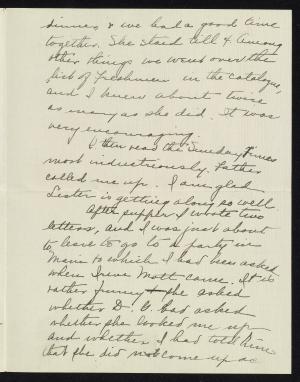 dinner & we had a good time
together. She staed till 4. Among
other things we went over the
list of Freshmen in the catalogue,
and I knew about twice
as many as she did. It was
very encouraging.
I then read the Sunday Times
most industriously. Father
called me up. I am glad
Lester is getting along so well
After supper I wrote two
letters, and I was just about
to leave to go to a party in
Main to which I had been asked
when Irene Mott came. It is
rather funny she asked
whether D. V. had asked
whether she looked me up
and whether I had told
that she did not come up as